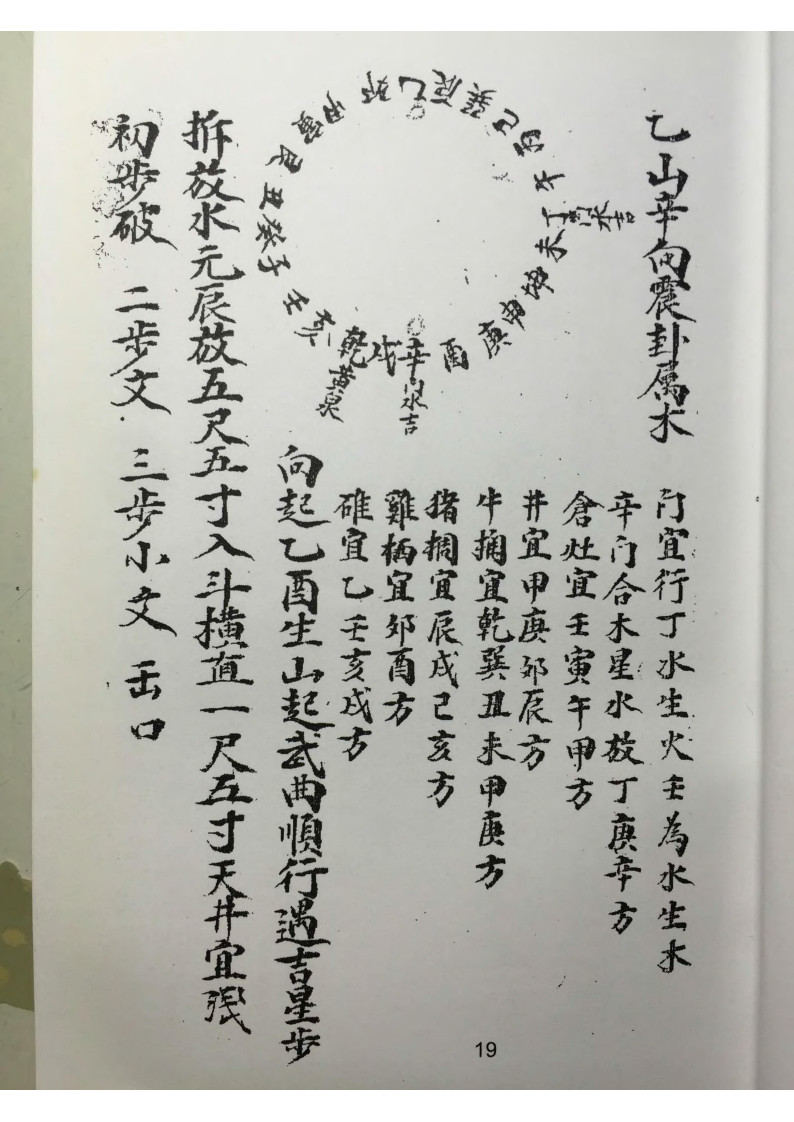 乙山辛向震卦属木
乙
卯
甲
寅
艮
丑
癸
子
壬
亥
乾黄泉
戌
辛向水吉
酉
庚
申
坤
未
丁水吉
午
丙
巳
巽
辰
门宜行丁水生火壬為水生木
辛门合木星水放丁庚辛方
倉灶宜壬寅午甲方
井宜甲庚卯辰方
牛摑宜乾巽丑未甲庚方
猪摑宜辰戌己亥方
雞栖宜卯酉方
碓宜乙壬亥戌方
向起乙酉生山起武曲順行遇吉星步
拆放水元辰放五尺五寸入斗橫直一尺五寸天井宜
初步破 二步文 三步小文 口
19